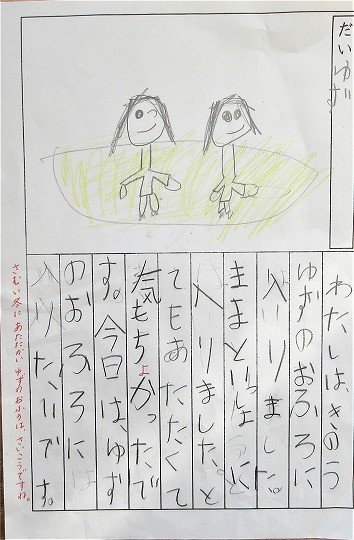 だい ゆず
わたしは、きのう
ゆずのおふろに
入りました。
ままといっしょに
入りました。と
てもあたたくて
気もちよかったで
す。今日はゆず
のおふろに
入りたいです。
さむい冬に あたたかい ゆずのおふろは、さいこうですね。